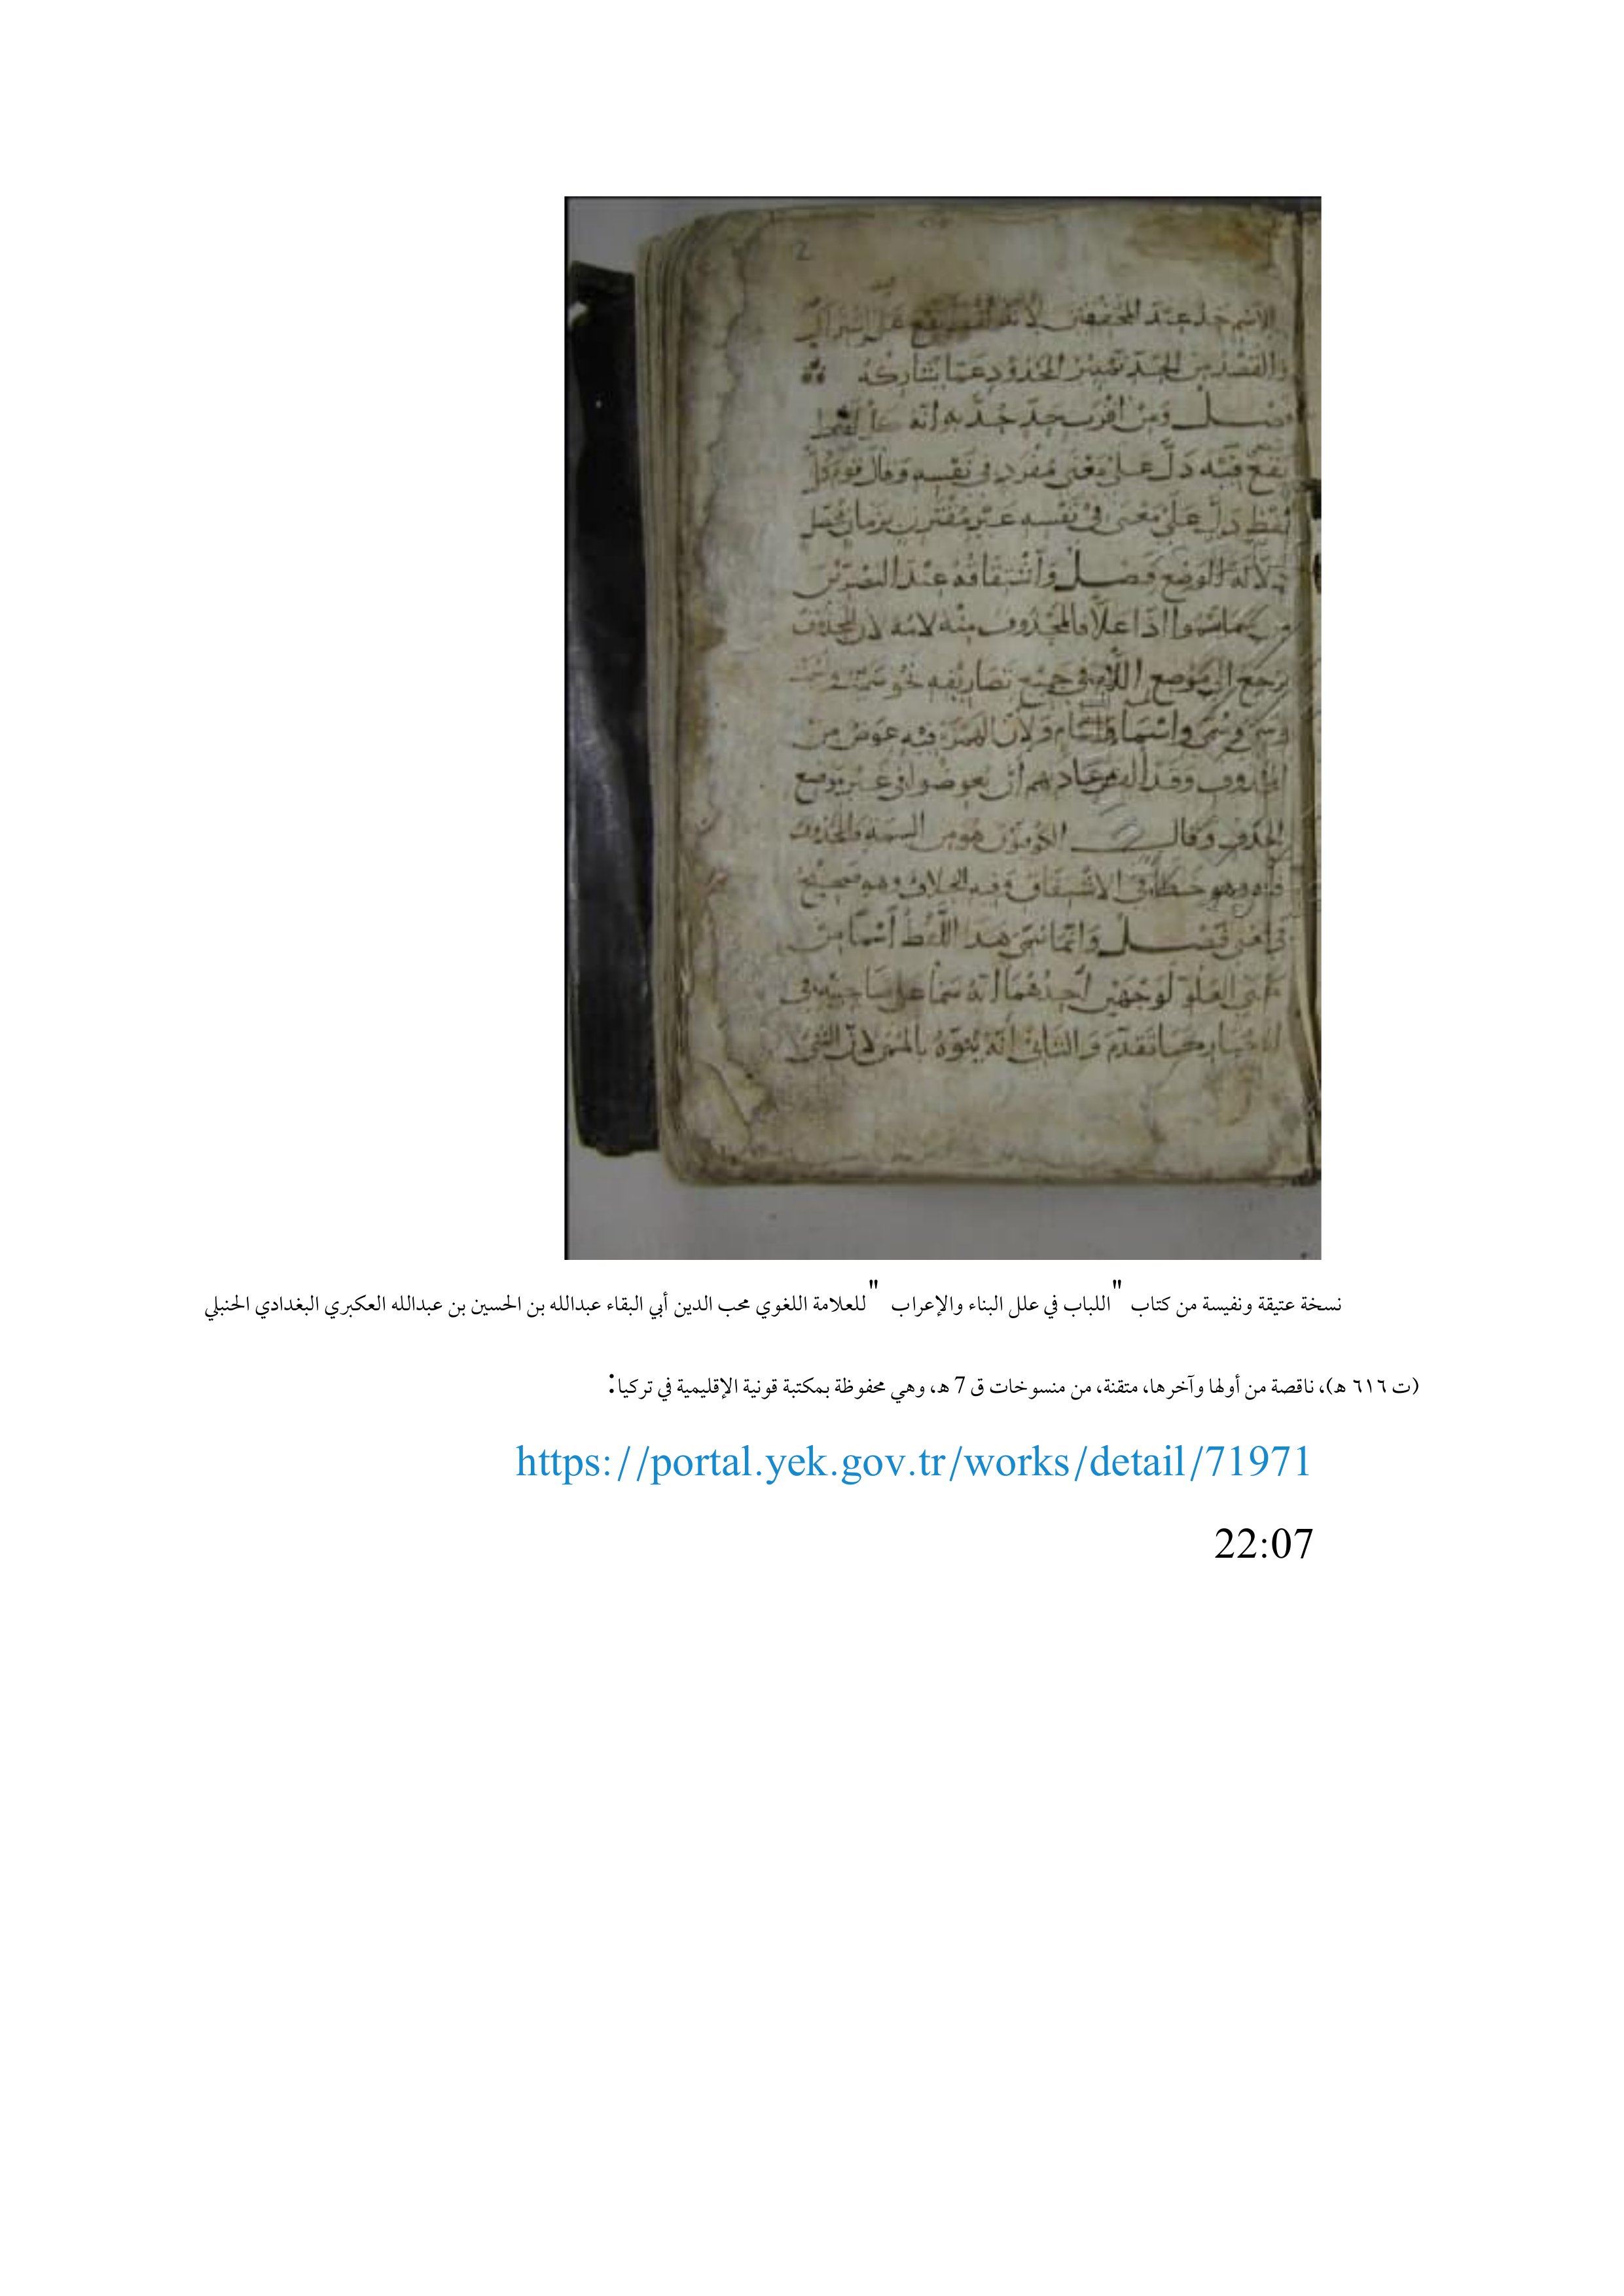 2
الاسم حد عند المحققين لانه لفظ يقع على
والقصد من الحد تمييز المحدود عما يشاركه
فصل ومن اقرب حد حد به انه كل لفظ
دل على معنى مفرد في نفسه وقال قوم كل
لفظ دل على معنى في نفسه غير مقترن بزمان محصل
دلالة الوضع فصل واشتقاقه عند البصريين
من سما يسموا اذا علا فالمحذوف منه لامه لان المحذوف
يرجع الى موضع اللام في جميع تصاريفه نحو سميت
وسمي وسمي واسما واسام ولان الهمزة فيه عوض من
المحذوف وقد الف من عادتهم ان يعوضوا في غير موضع
الحذف وقال الكوفيون هو من السمة والمحذوف
فاوه وهو خطأ في الاشتقاق وفيه الخلاف وهو صحيح
في المعنى فصل وانما سمي هذا اللفظ اسما من
معنى العلو لوجهين احدهما انه سما على صاحبيه في
الاخبار كما تقدم والثاني انه ينوه بالمسمى لان الشيء
نسخة عتيقة ونفيسة من كتاب "اللباب في علل البناء والإعراب "للعلامة اللغوي محب الدين أبي البقاء عبدالله بن الحسين بن عبدالله العكبري البغدادي الحنبلي
(ت ٦١٦ هـ)، ناقصة من أولها وآخرها، متقنة، من منسوخات ق 7 هـ، وهي محفوظة بمكتبة قونية الإقليمية في تركيا:
https://portal.yek.gov.tr/works/detail/71971
22:07